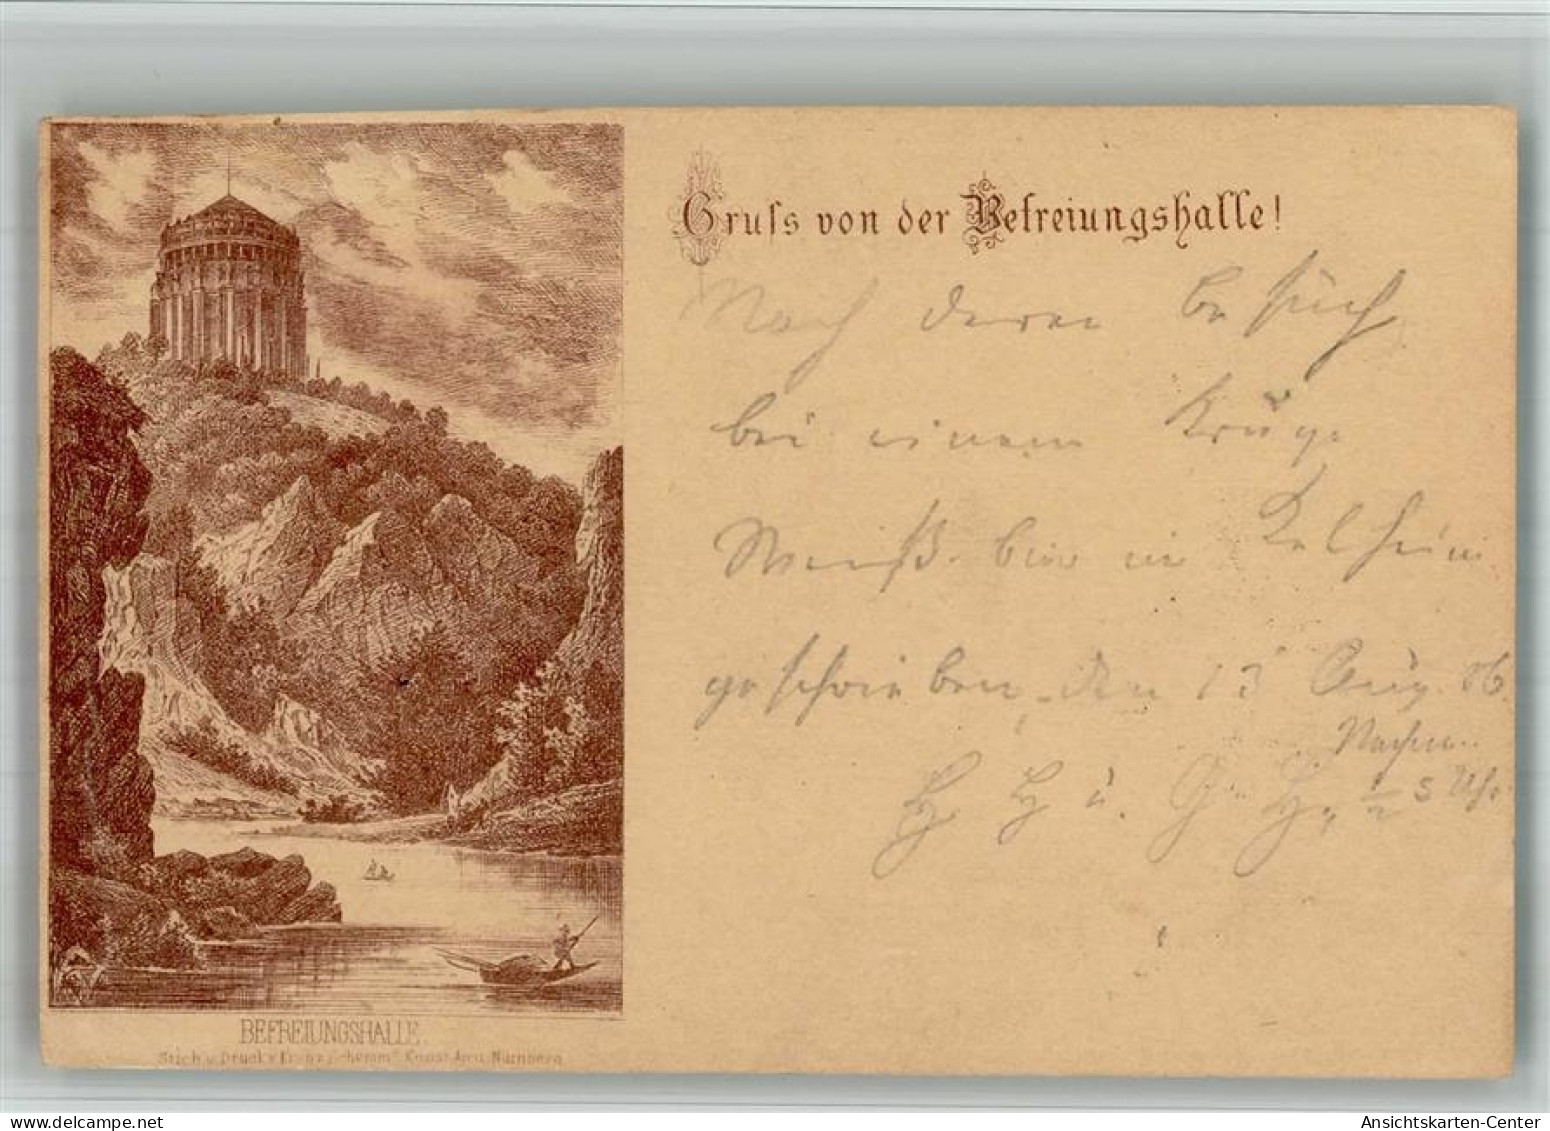 Gruss von der Befreiungshalle!
Nach deren Besuch
bei einem Kruge
Weiß-bier in Kelheim
geschrieben den 13 Aug. 86.
Nachm.
½ 5 Uhr
BEFREIUNGSHALLE.
Stich u. Druck v. Kunst-Anst. Nürnberg
Ansichtskarten-Center